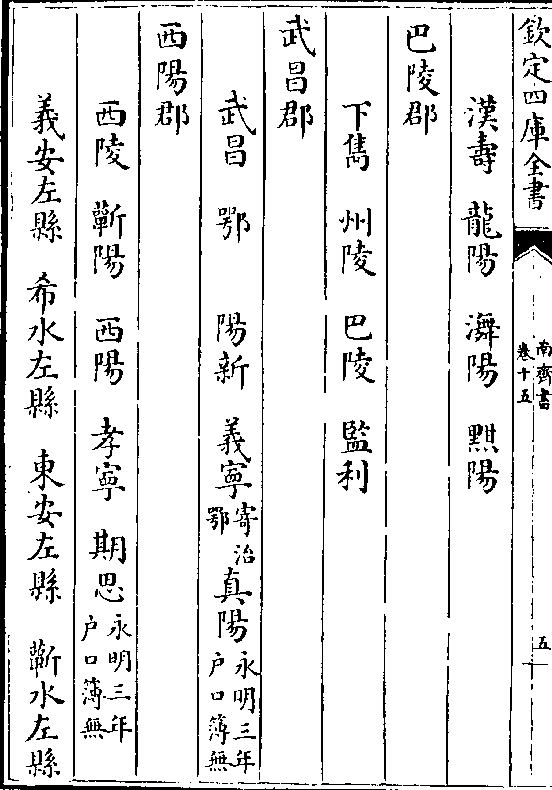 欽定四庫全書
南齊書
卷十五
五
漢壽 龍陽 㵲陽 黚陽
巴陵郡
下雋 州陵 巴陵 監利
武昌郡
武昌 鄂 陽新 義寧寄治鄂 真陽永明三年户口簿無
西陽郡
西陵 蘄陽 西陽 孝寧 期思永明三年户口簿無
義安左縣 希水左縣 東安左縣 蘄水左縣